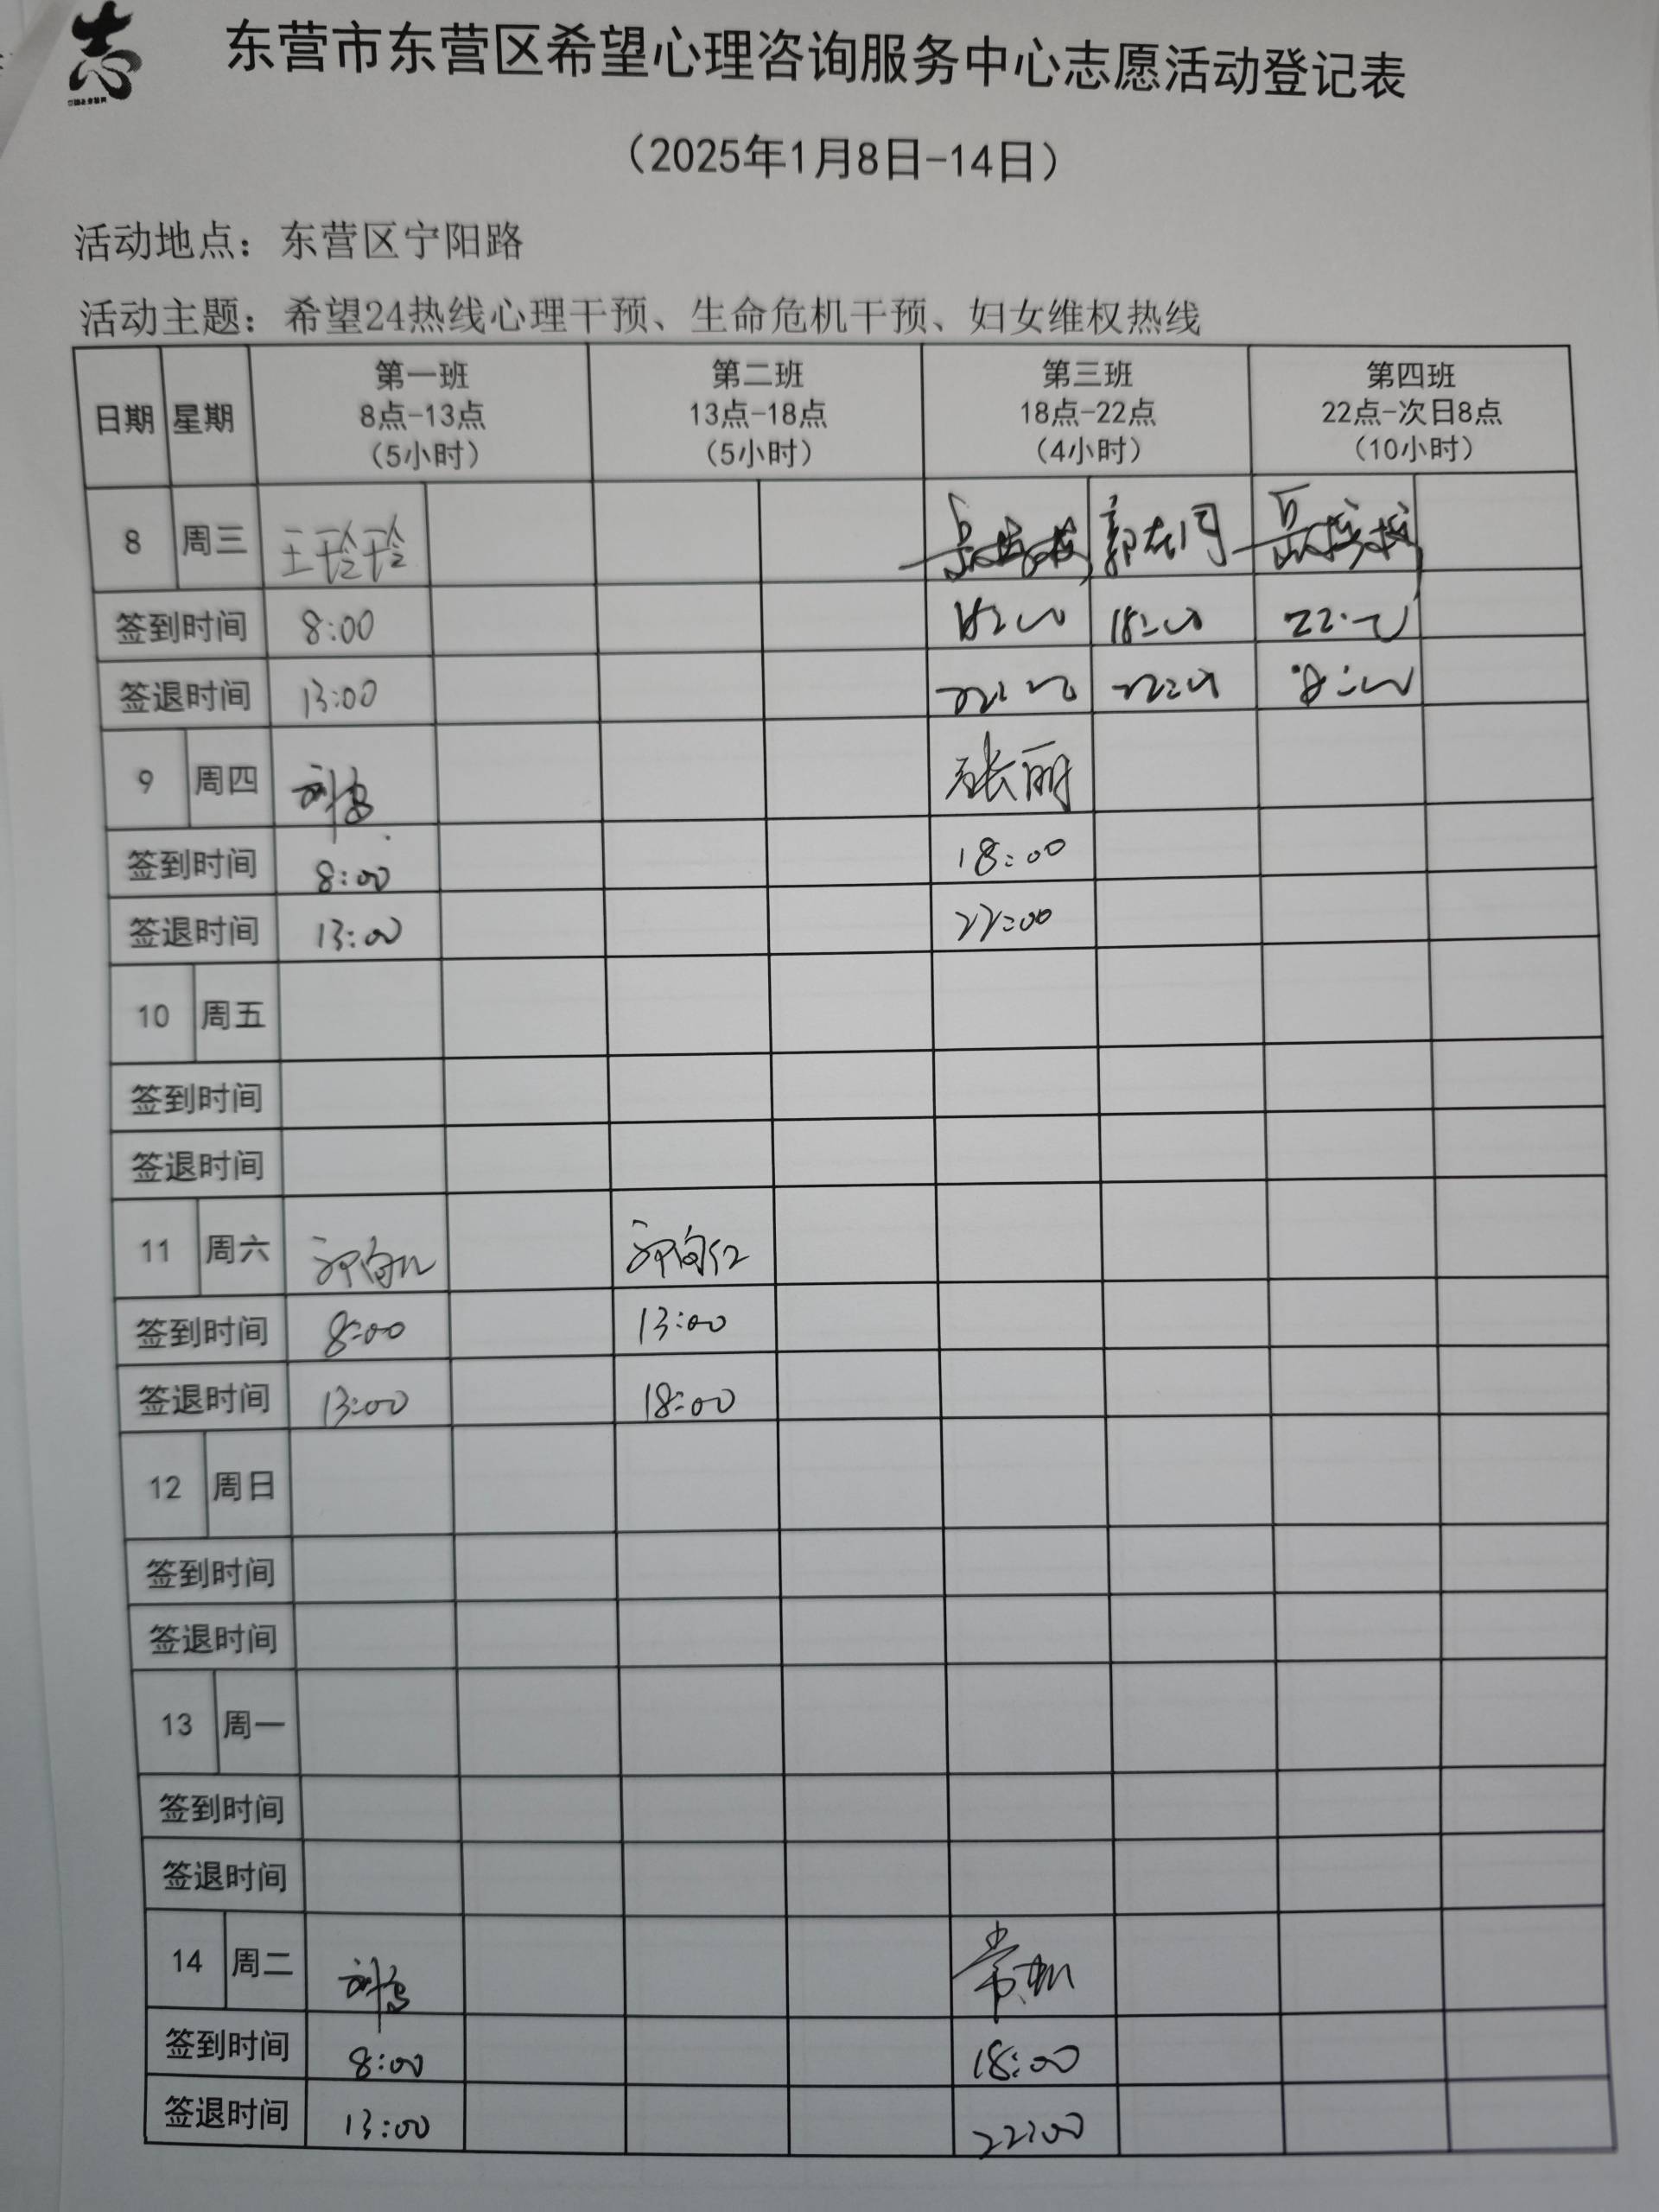 志
东营市东营区希望心理咨询服务中心志愿活动登记表
（2025年1月8日-14日）
活动地点：东营区宁阳路
活动主题：希望24热线心理干预、生命危机干预、妇女维权热线
日期 星期 第一班 8点-13点 （5小时） 第二班 13点-18点 （5小时） 第三班 18点-22点 （4小时） 第四班 22点-次日8点 （10小时）
8 周三 王玲玲
签到时间 8:00 18:00 18:00 22:00
签退时间 13:00 22:00 22:00 8:00
9 周四 张丽
签到时间 8:00 18:00
签退时间 13:00 22:00
10 周五
签到时间
签退时间
11 周六
签到时间 8:00 13:00
签退时间 13:00 18:00
12 周日
签到时间
签退时间
13 周一
签到时间
签退时间
14 周二
签到时间 8:00 18:00
签退时间 13:00 22:00